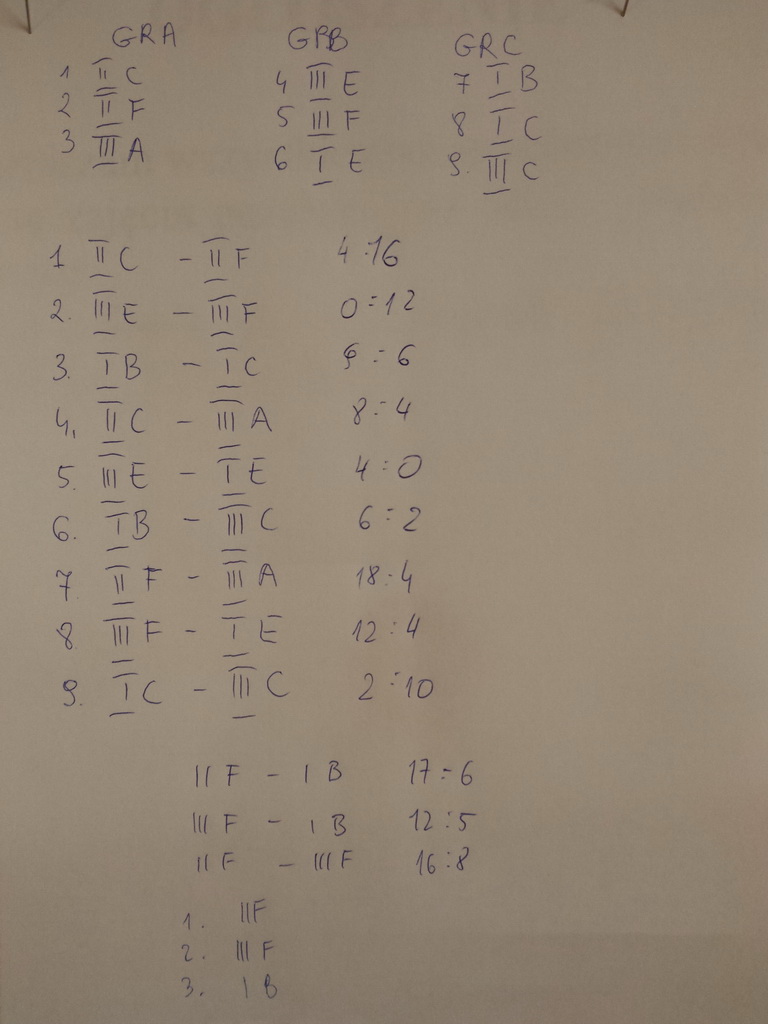 GRA GRB GRC
1 II C 4 III E 7 I B
2 II F 5 III F 8 I C
3 III A 6 I E 9. III C
1 II C - II F 4:16
2. III E - III F 0:12
3. I B - I C : 6
4. II C - III A 8:4
5. III E - I E 4:0
6. I B - III C 6:2
7 II F - III A 18:4
8 III F - I E 12:4
9. I C - III C 2:10
II F - I B 17:6
III F - I B 12:5
II F - III F 16:8
1. II F
2. III F
3. I B